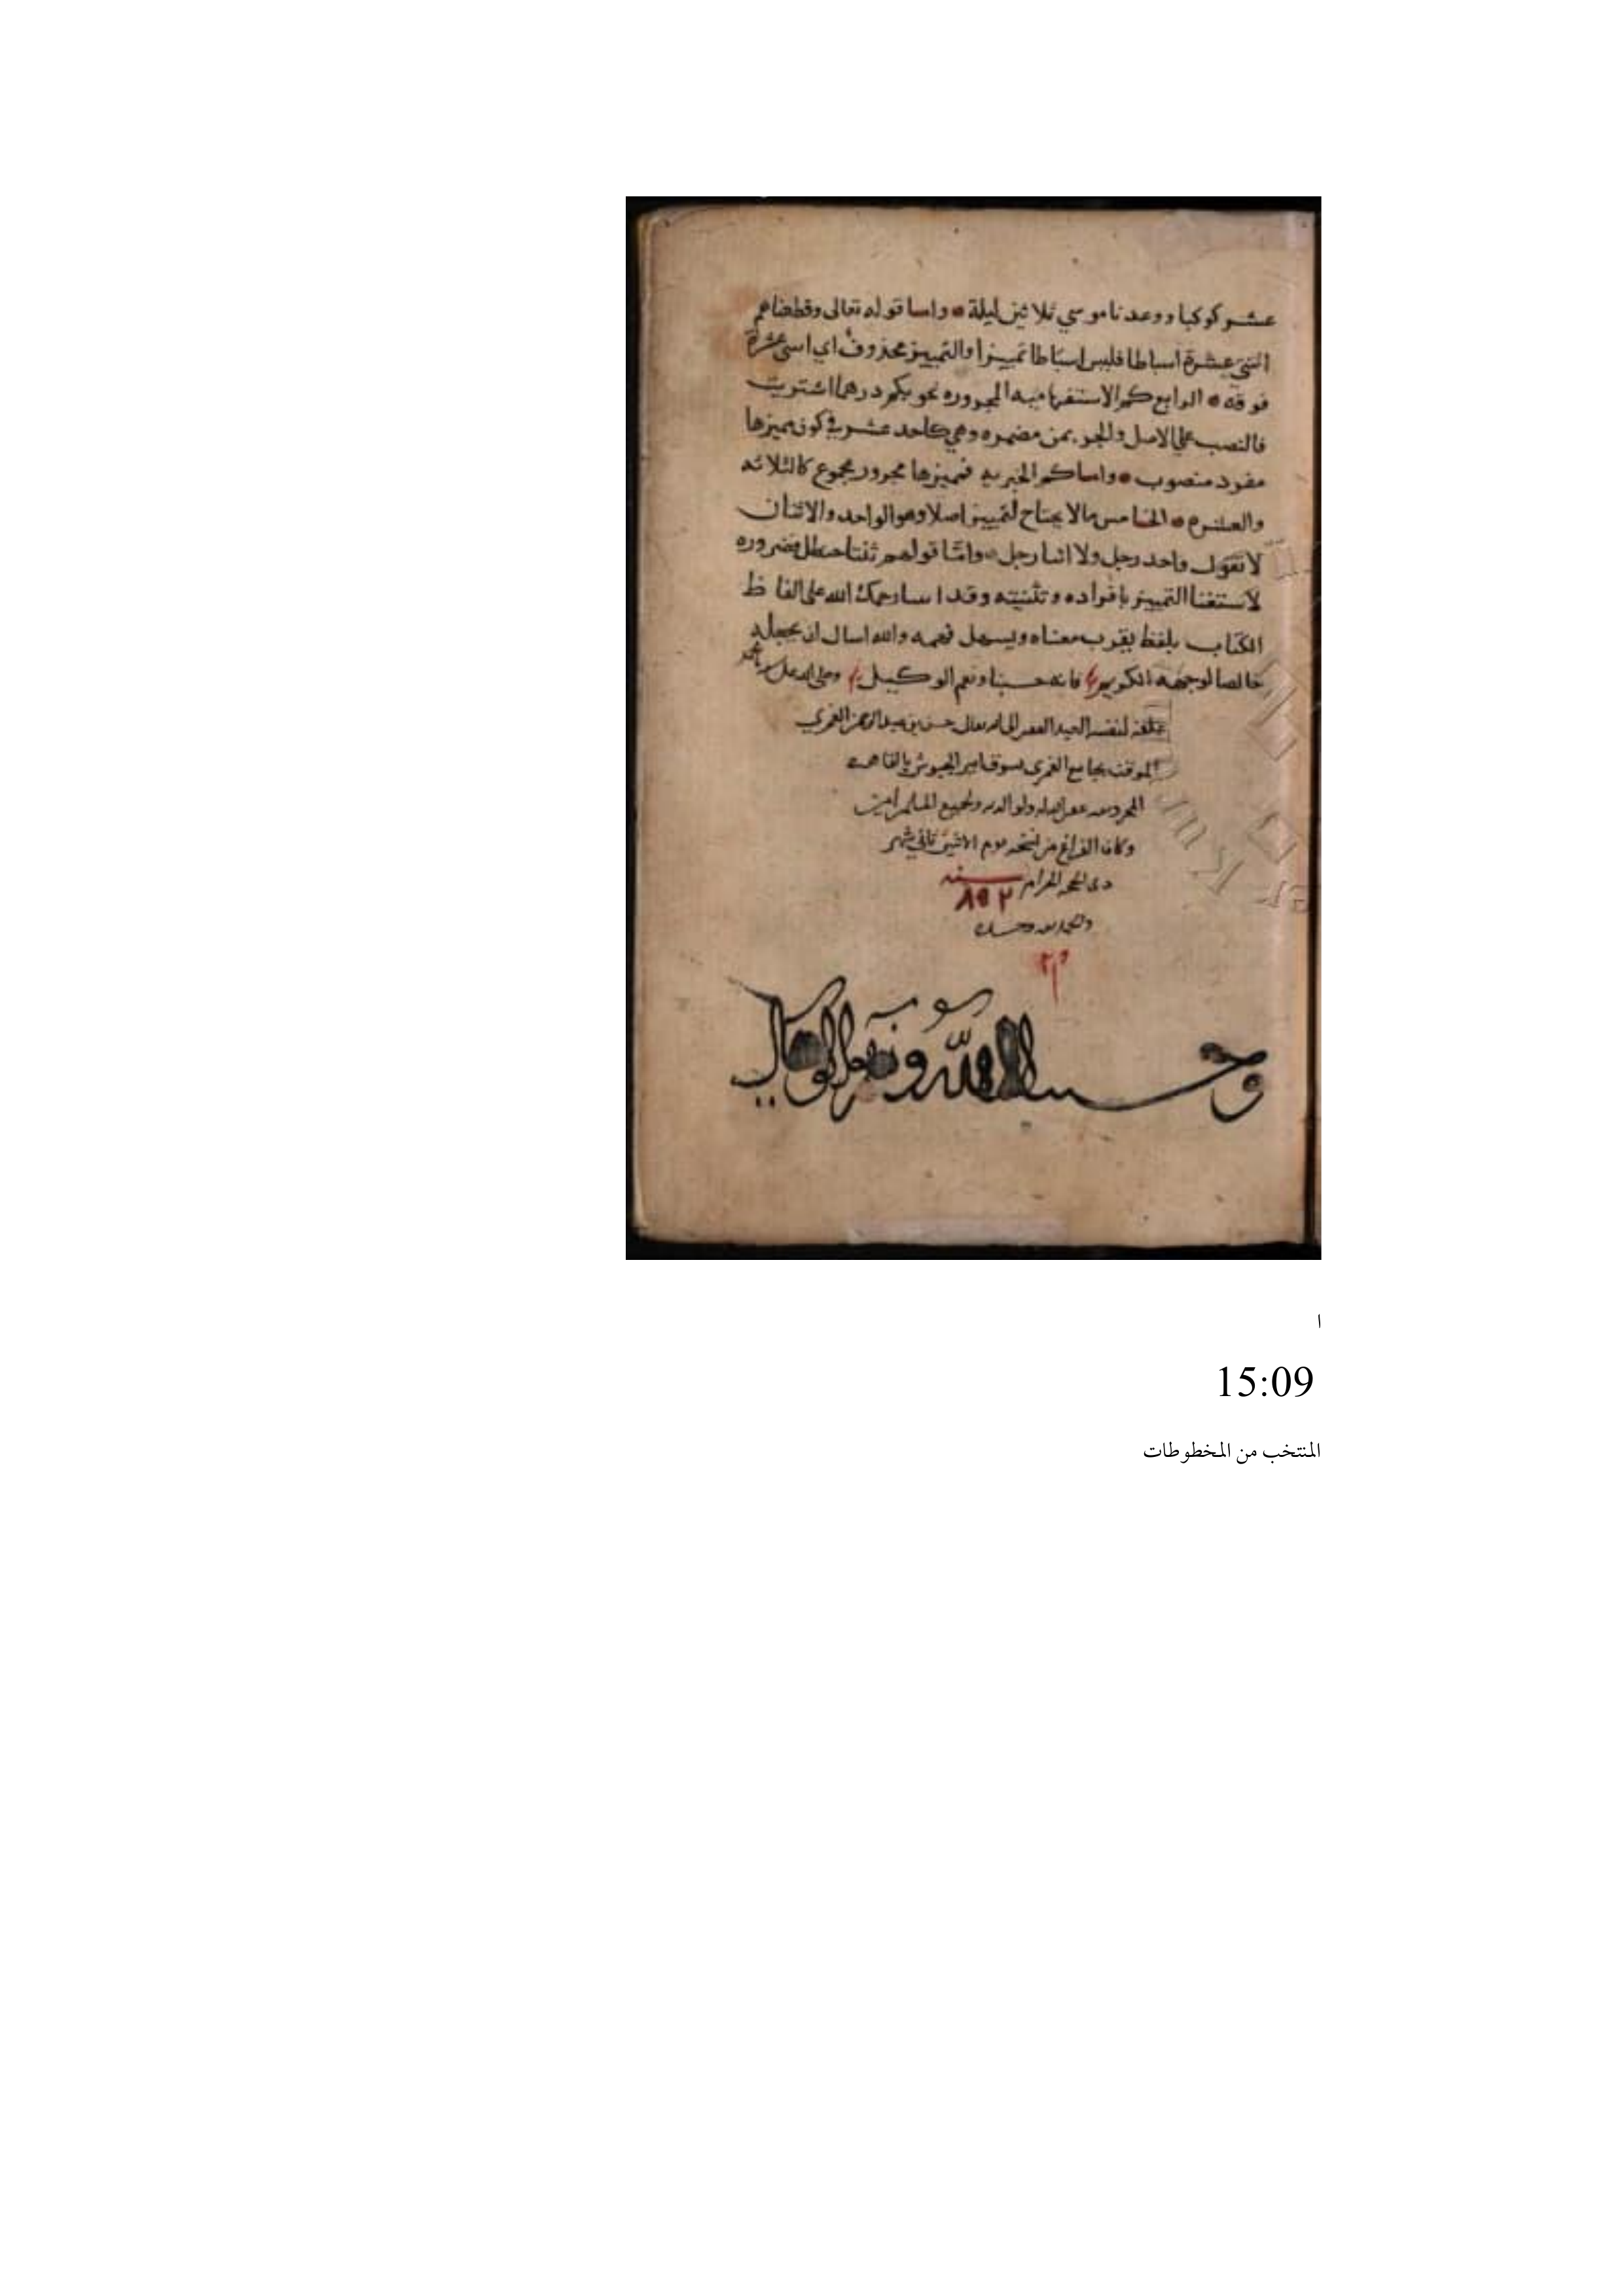 عشر كوكبا ووعدنا موسي ثلاثين ليلة واما قوله تعالى وقطعناهم
اثنتي عشرة اسباطا فليس اسباطا تمييزا والتمييز محذوف اي اثنتي عشرة
فرقه الرابع كم الاستفهاميه المجروره نحو بكم درهما اشتريت
فالنصب على الاصل والجر بمن مضمره وهي كاحد عشر في كون مميزها
مفرد منصوب واما كم الخبريه فمميزها مجرور مجموع كالثلاثه
والعشره الخامس مالا يحتاج لتمييز اصلا وهو الواحد والاثنان
لا تقول واحد رجل ولا اثنا رجل واما قولهم ثنتا حنظل فضروره
لاستغنا التمييز بافراده وتثنيته وقد رحمك الله على الفاظ
الكتاب بلفظ يقرب معناه ويسهل فهمه والله اسال ان يجعله
خالصا لوجهه الكريم فانه حسبنا ونعم الوكيل وصلى الله على محمد
علقه لنفسه العبد الفقير الى الله تعالى حسن بن عبد الرحمن الغمري
الموقت بجامع الغمري بسوق امير الجيوش بالقاهره
المحروسه غفر الله له ولوالديه ولجميع المسلمين امين
وكان الفراغ من نسخه يوم الاثنين ثاني شهر
ذي الحجه الحرام سنه
٨٩٢
والحمد لله وحده
وحسبنا الله ونعم الوكيل
ا
15:09
المنتخب من المخطوطات